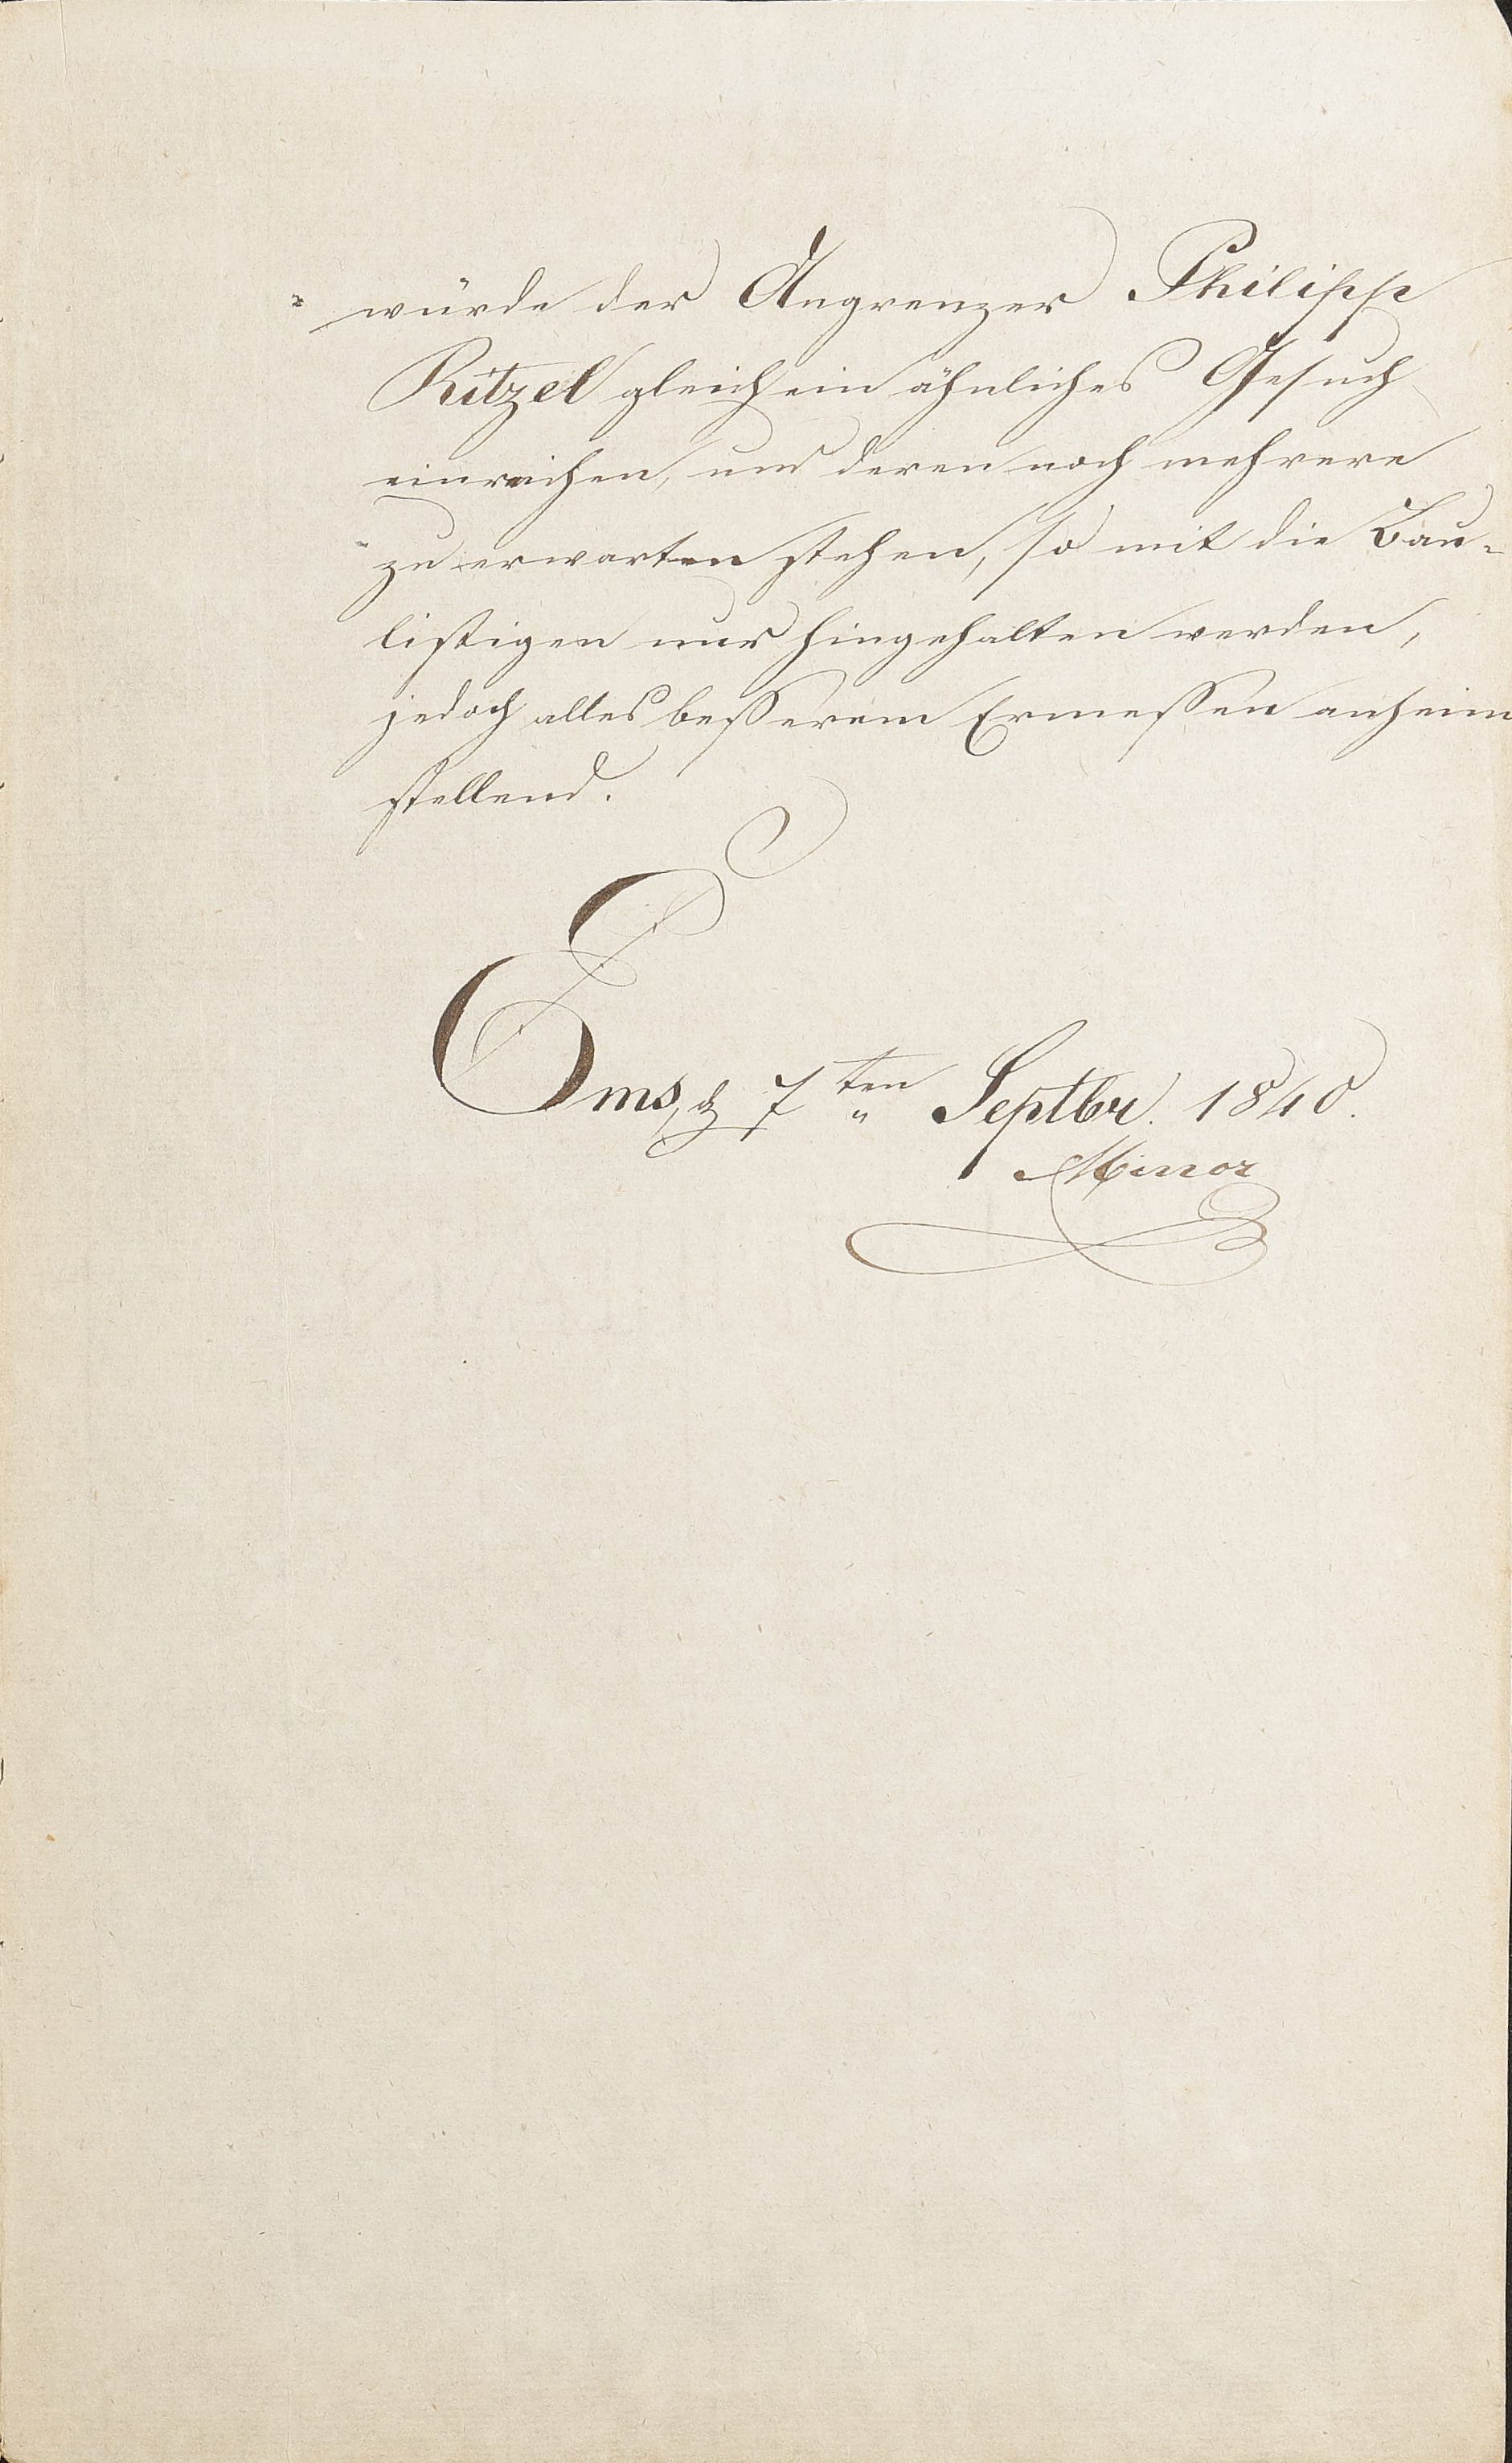 würde der Angrenzer Philipp
Ritzel gleich ein ähnliches Gesuch
einreichen, und deren noch mehrere
zu erwarten stehen, so mit die Bau-
listigen nur hingehalten werden,
jedoch alles beßerem Ermeßen anheim
stellend.
Ems, d 7ten Septbr. 1840.
Minor